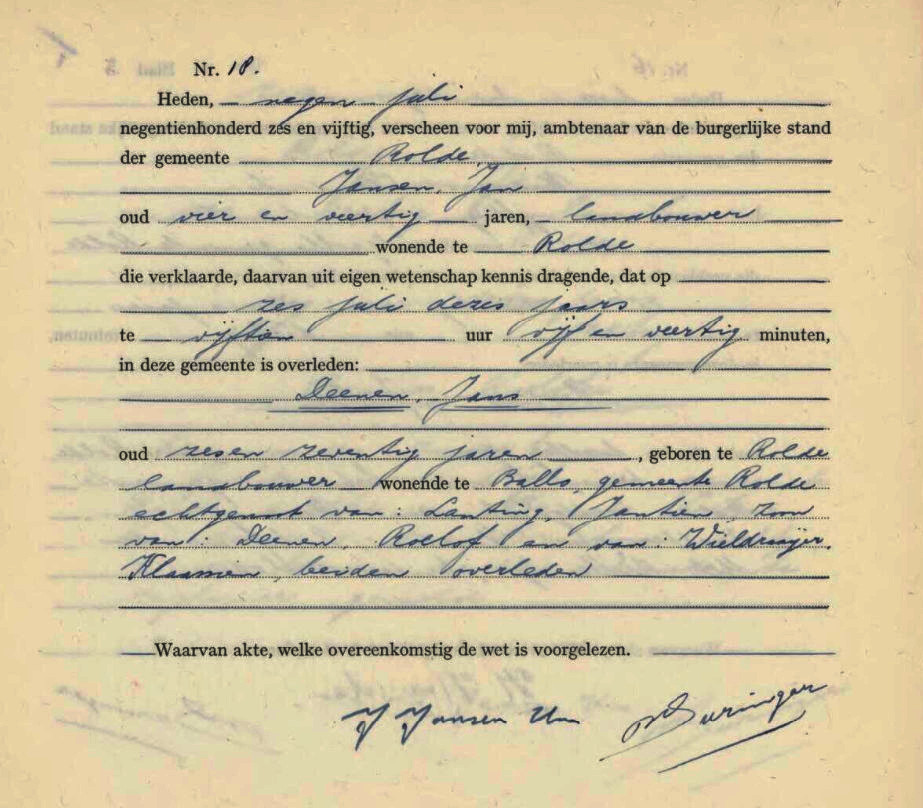 Nr. 18.
Heden, negen juli
negentienhonderd zes en vijftig, verscheen voor mij, ambtenaar van de burgerlijke stand
der gemeente Rolde,
Jansen, Jan
oud vier en veertig jaren, landbouwer
wonende te Rolde
die verklaarde, daarvan uit eigen wetenschap kennis dragende, dat op
zes juli dezes jaars
te vijftien uur vijf en veertig minuten,
in deze gemeente is overleden:
Deenen, Jans
oud zes en zeventig jaren, geboren te Rolde
landbouwer wonende te Ballo, gemeente Rolde
echtgenoot van: Lanting, Jantien, zoon
van: Deenen, Roelof en van: Wieldraaijer,
Klaasien, beiden overleden
Waarvan akte, welke overeenkomstig de wet is voorgelezen.
J Jansen